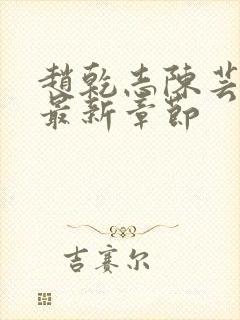 趙乾志陳芸
最新章節
吉賽尔